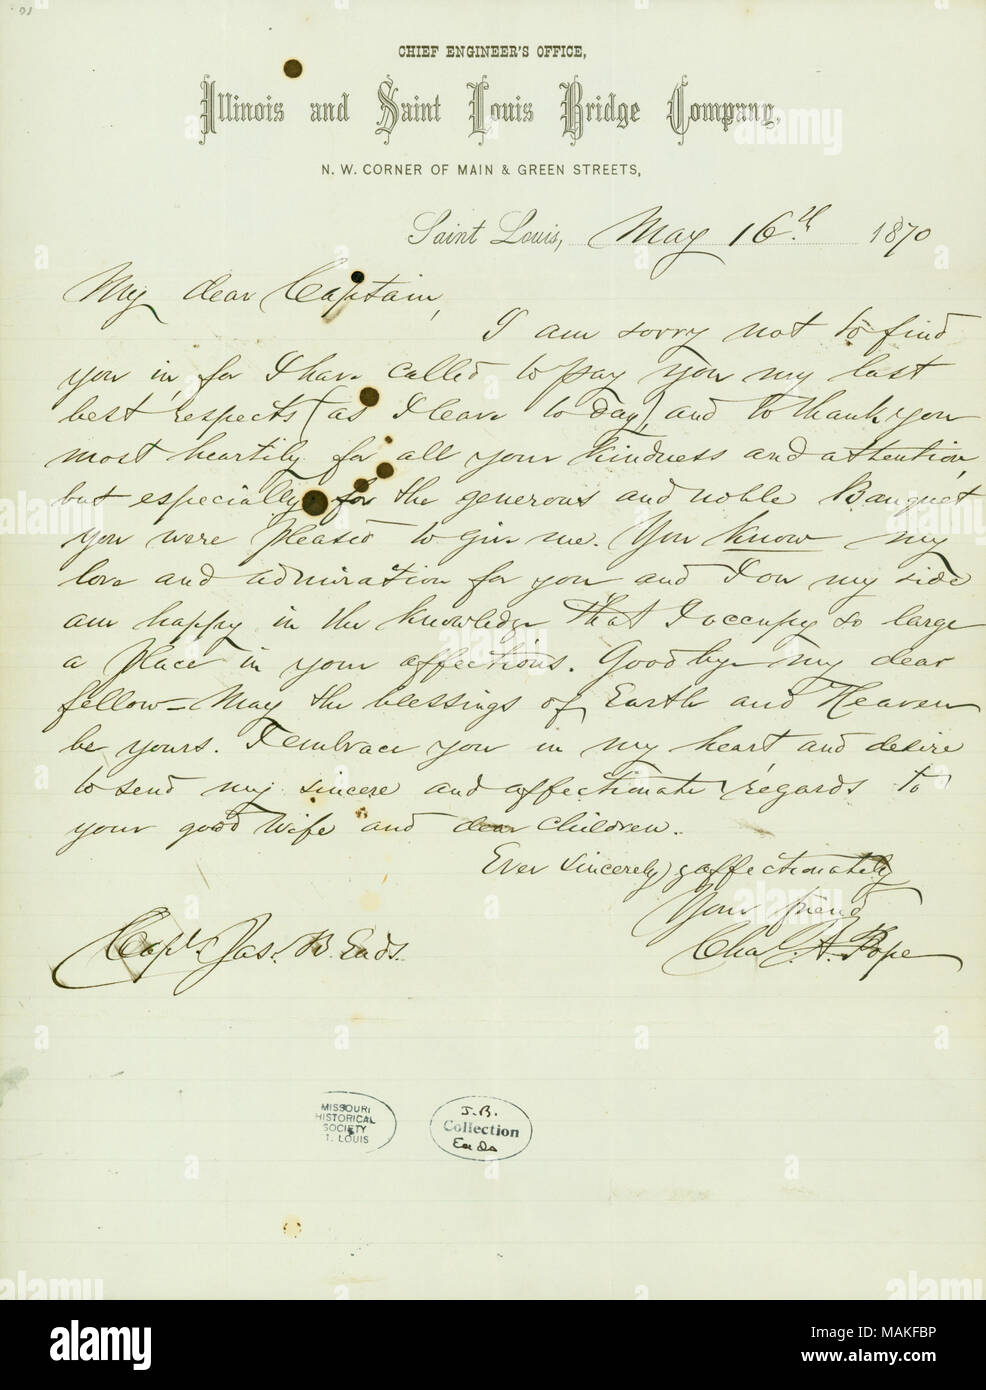 CHIEF ENGINEER'S OFFICE,
Illinois and Saint Louis Bridge Company,
N. W. CORNER OF MAIN & GREEN STREETS,
Saint Louis, May 16th 1870
My dear Captain,
I am sorry not to find
you in, for I have called to pay you my last
best respects (as I leave to day) and to thank you
most heartily for all your kindness and attention,
but especially for the generous and noble Banquet
you were pleased to give me. You know my
love and admiration for you and I on my side
am happy in the knowledge that I occupy so large
a place in your affections. Good bye my dear
fellow – May the blessings of Earth and Heaven
be yours. I embrace you in my heart and desire
to send my sincere and affectionate regards to
your good wife and dear children.
Ever sincerely & affectionately
Your friend
Chas. A. Pope
Capt. Jas. B. Eads.
MISSOURI
HISTORICAL
SOCIETY
T. LOUIS
J.B.
Collection
Eads
alamy
Image ID: MAKFBP
www.alamy.com